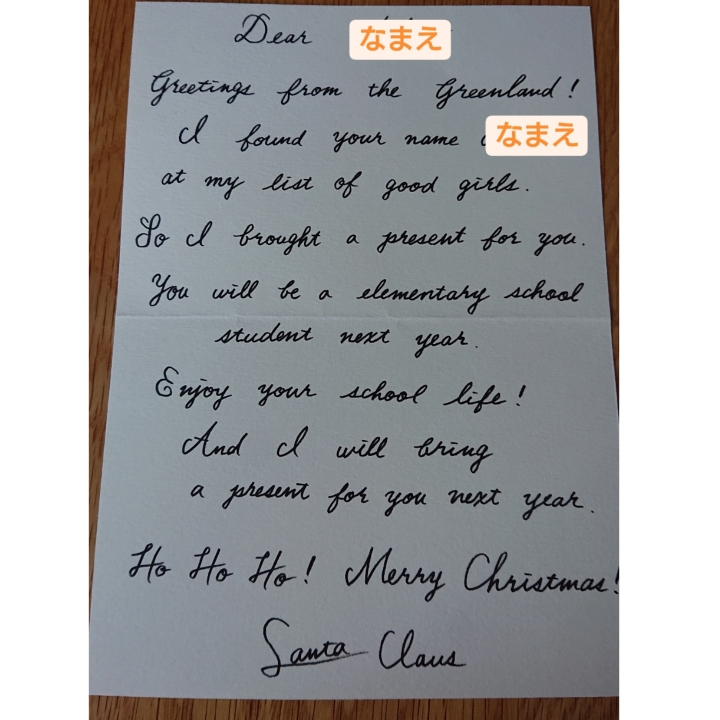 Dear なまえ
Greetings from the Greenland!
I found your name なまえ
at my list of good girls.
So I brought a present for you.
You will be a elementary school
student next year.
Enjoy your school life!
And I will bring
a present for you next year.
Ho Ho Ho! Merry Christmas!
Santa Claus